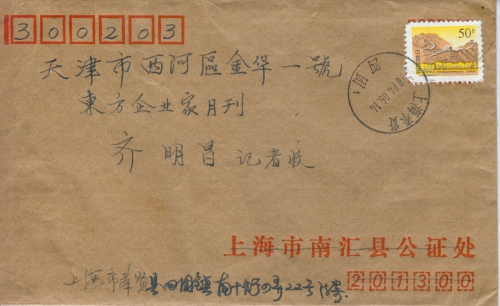 300203
50分
天津市西河區金华一號
東方企业家月刊
齐明昌 记者收
上海市南汇县公证处
上海市奉贤县四团镇
22号
201300